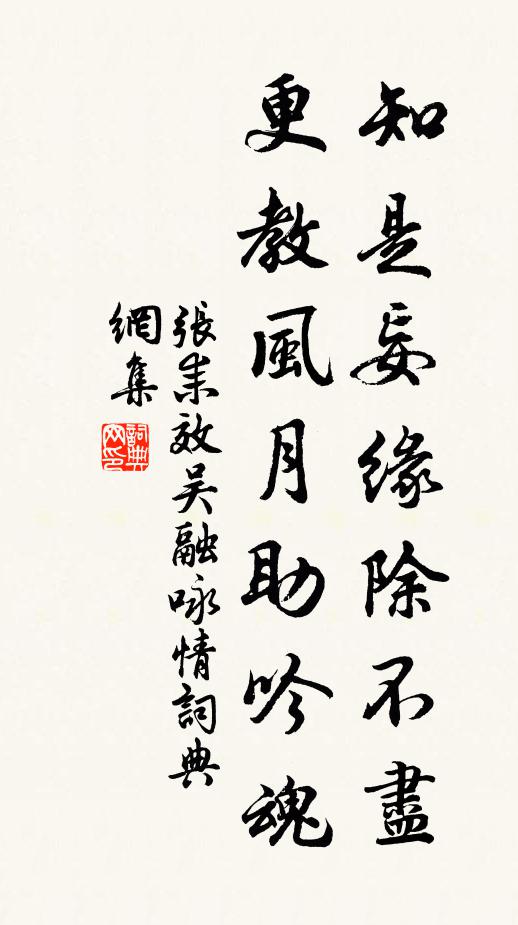 知是妄緣除不盡
更教風月助吟魂
張耒效吳融咏情詞典
網集
詞典
网印